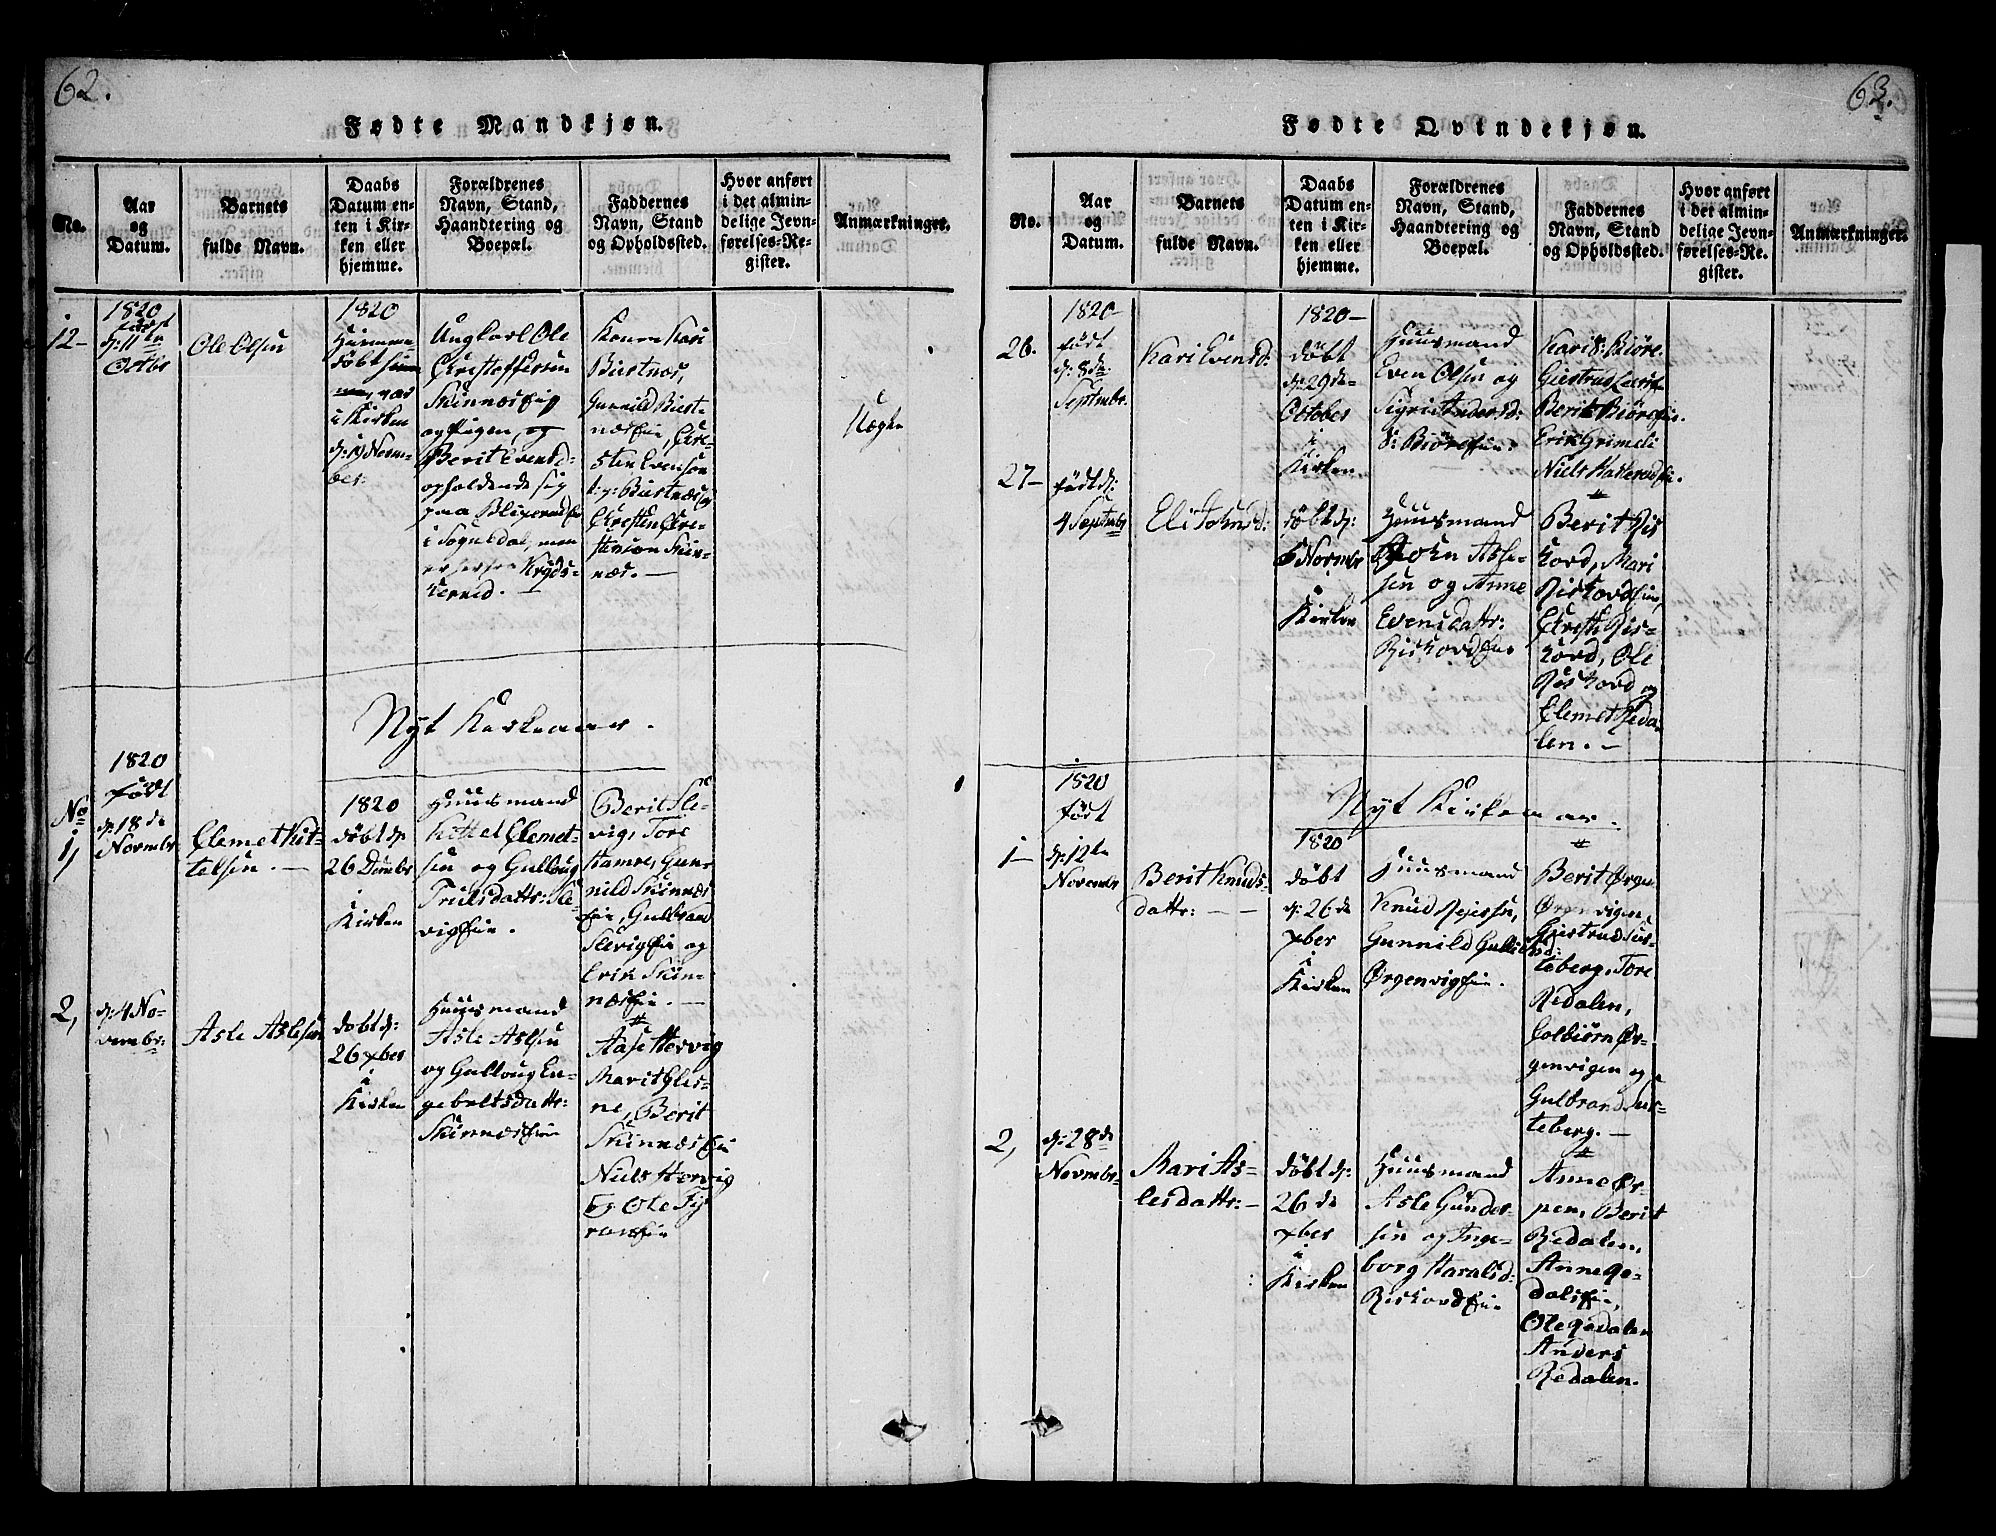 62.
Fødte Mandkjøn.
No.
Aar
og
Datum.
Barnets
fulde Navn.
Daabs
Datum en-
ten i Kir-
ken eller
hjemme.
Forældrenes
Navn, Stand,
Haandtering og
Boepæl.
Faddernes
Navn, Stand
og Opholdssted.
Hvor anført
i det almin-
delige Jevn-
førelses-Re-
gister.
Anmærkninger.
12-
1820
født
d: 11te
Octbr
Ole Olsen
1820
Hiemme
døbt
var
i Kirken
d: 19 Novem-
ber:
Ungkarl Ole
Christoffersen
Skinnesei
og Pigen, og
Berit Evensd:
opholdende sig
paa
i Sognedal, men
Kryds-
herred.
Kone Kari
Biestnes,
Gunnild Biest-
neseie, Chri-
sten Evenson
Biestnes
Christen Chri-
stenson Skin-
nes.
Uægte
Nyt Kirkeaar.
No
1,
1820
født
d: 18de
Novmbr
Clemet Kit-
telsen.
1820
døbt d:
26 Dcmbr
i
Kirken
Huusmand
Kittel Clemet-
sen og Gulloug
Trulsdattr: Sle-
vigeie.
Berit Sle-
vig, Tore
Hamre, Gun-
nild Skinnes
eie, Gulbrand
Slevigeie og
Erik Skin-
neseie.
2,
d: 4 No-
vember:
Asle Aslesen
døbt d:
26 xber
i
Kirken
Huusmand
Asle Aslsen
og Gulloug En-
gebretsdattr:
Skinneseie
Aase Hervig
Marit Gles-
ne, Berit
Skinneseie
Niels Hervig
og Ole
63.
Fødte Qvindekjøn.
No.
Aar
og
Datum.
Barnets
fulde Navn.
Daabs
Datum en-
ten i Kir-
ken eller
hjemme.
Forældrenes
Navn, Stand,
Haandtering og
Boepæl.
Faddernes
Navn, Stand
og Opholdssted.
Hvor anført
i det almin-
delige Jevn-
førelses-Re-
gister.
Anmærkninger.
26.
1820
født
d: 8de
Septmbr.
Kari Evensd:
1820
døbt
d: 29de
October
i
Kirken
Huusmand
Even Olsen og
Sigri Andersd:
S: Biøreeie
Kari S: Biøre.
Giertrud
Berit Biøreeie.
Erik Grimeli
Niels
27
født d:
4 Septmbr
Eli Johnsd:
døbt d:
6 Novmbr
i
Kirken
Huusmand
John Asle-
sen og Anne
Evensdattr:
Riskordeie
Berit Ris
kord, Mari
Riskordeie,
Christi Ris-
kord, Ole
Riskord og
Clemet Reda-
len.
Nyt Kirkeaar.
1
1820
født
d: 12te
Novembr
Berit Knuds-
dattr:
1820
døbt
d: 26de
xber
i
Kirken
Huusmand
Knud
Gunnild
Ørgenvigeie.
Berit Ørgen
Ørgenvigen,
Giertrud Sus-
teberg, Tore
Redalen,
Colbiørn Ør-
genvigen og
Gulbrand Sus-
teberg.
2,
d: 28de
Novmbr
Mari As-
lesdattr:
døbt d:
26de
xber
i
Kirken
Huusmand
Asle Gunder-
sen og Inge-
borg Haralsd:
Riskordeie
Anne Ør-
pen, Berit
Redalen,
Anne Re-
dalseie,
Ole Redalen
Anders
Redalen.